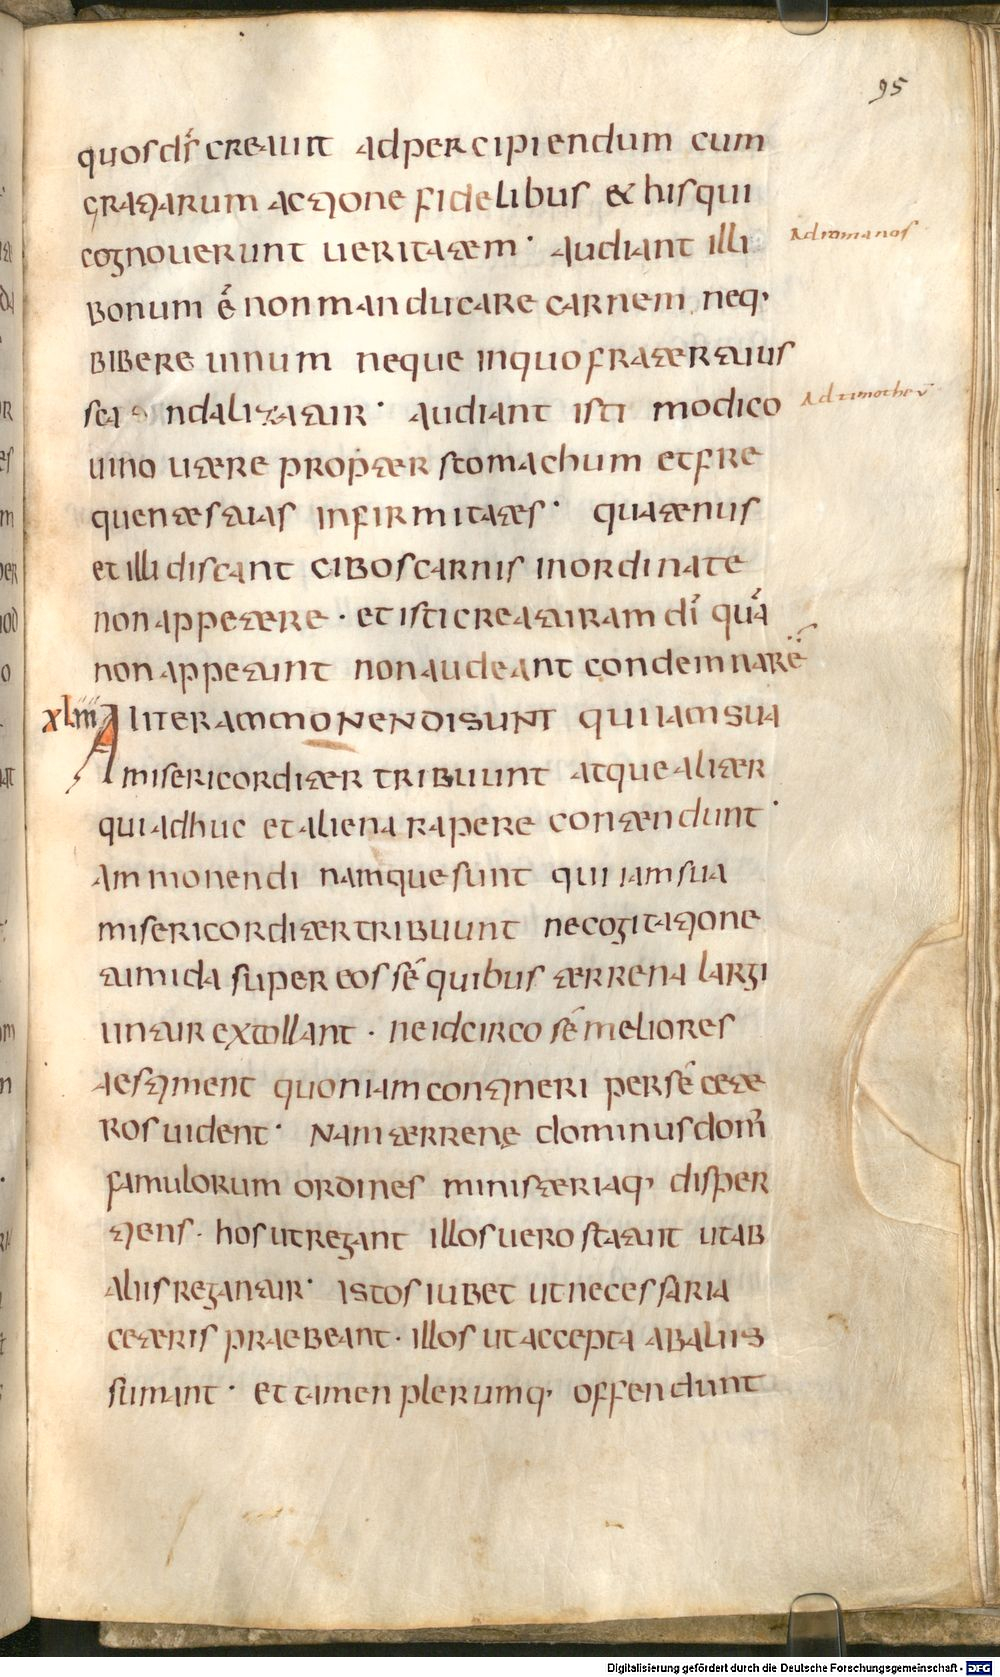 95
quos dſ creauit ad percipiendum cum
gratiarum actione fidelibus & his qui
cognouerunt ueritatem· audiant illi
Ad romanos
bonum ē non manducare carnem neq·
bibere uinum neque in quo frater tuus
scandalizatur· audiant isti modico
Ad timotheū
uino utere propter stomachum et fre
quentes tuas infirmitates· quatenus
et illi discant cibos carnis inordinate
non appetere· et isti creaturam dī quā
non appetunt non audeant condemnare
xliiii Aliter ammonendi sunt qui iam sua
misericorditer tribuunt atque aliter
qui adhuc et aliena rapere contendunt·
Ammonendi namque sunt qui iam sua
misericorditer tribuunt ne cogitatione
tumida super eos sē quibus terrena largi
untur extollant· ne idcirco sē meliores
aestiment quoniam contineri per sē cete
ros uident· Nam terrenę dominus dom̄
famulorum ordines ministeriaq· disper
tiens· hos ut regant illos uero statuit ut ab
aliis regantur· istos iubet ut necessaria
ceteris praebeant· illos ut accepta ab aliis
sumant· et tamen plerumq· offendunt
Digitalisierung gefördert durch die Deutsche Forschungsgemeinschaft - DFG